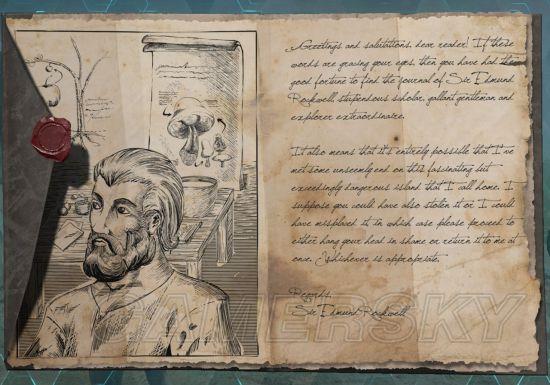 Greetings and salutations, dear reader! If these
words are gracing your eyes, then you have had the
good fortune to find the journal of Sir Edmund
Rockwell, stupendous scholar, gallant gentleman and
explorer extraordinaire.
It also means that it's entirely possible that I've
met some unseemly end on this fascinating but
exceedingly dangerous island that I call home. I
suppose you could have also stolen it or I could
have misplaced it, in which case please proceed to
either hang your head in shame or return it to me at
once. Whichever is appropriate.
Regards,
Sir Edmund Rockwell
GAMERSKY